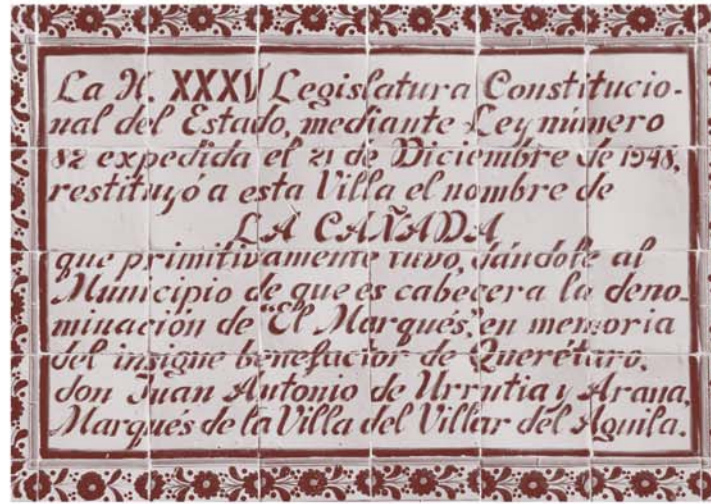 La H. XXXV Legislatura Constitucio-
nal del Estado, mediante Ley número
82 expedida el 21 de Diciembre de 1948,
restituyó a esta Villa el nombre de
LA CAÑADA
que primitivamente tuvo, dándole al
Municipio de que es cabecera la deno-
minación de "El Marqués", en memoria
del insigne benefactor de Querétaro,
don Juan Antonio de Urrutia y Arana,
Marqués de la Villa del Villar del Aguila.